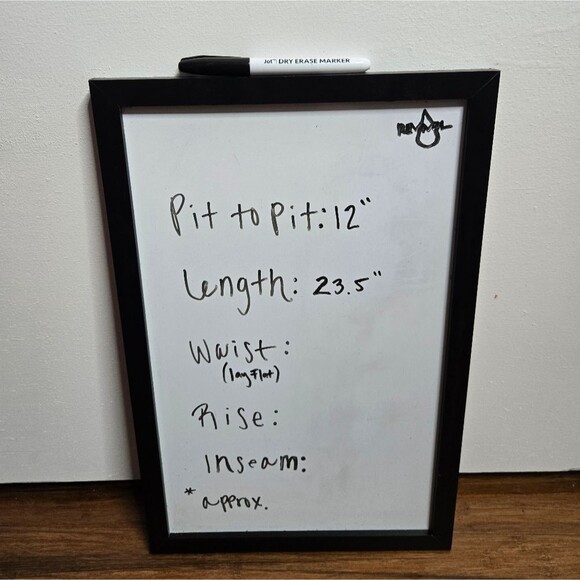 Jot™ DRY ERASE MARKER
REVIVAL
Pit to Pit: 12"
Length: 23.5"
Waist:
(lay Flat)
Rise:
Inseam:
* approx.